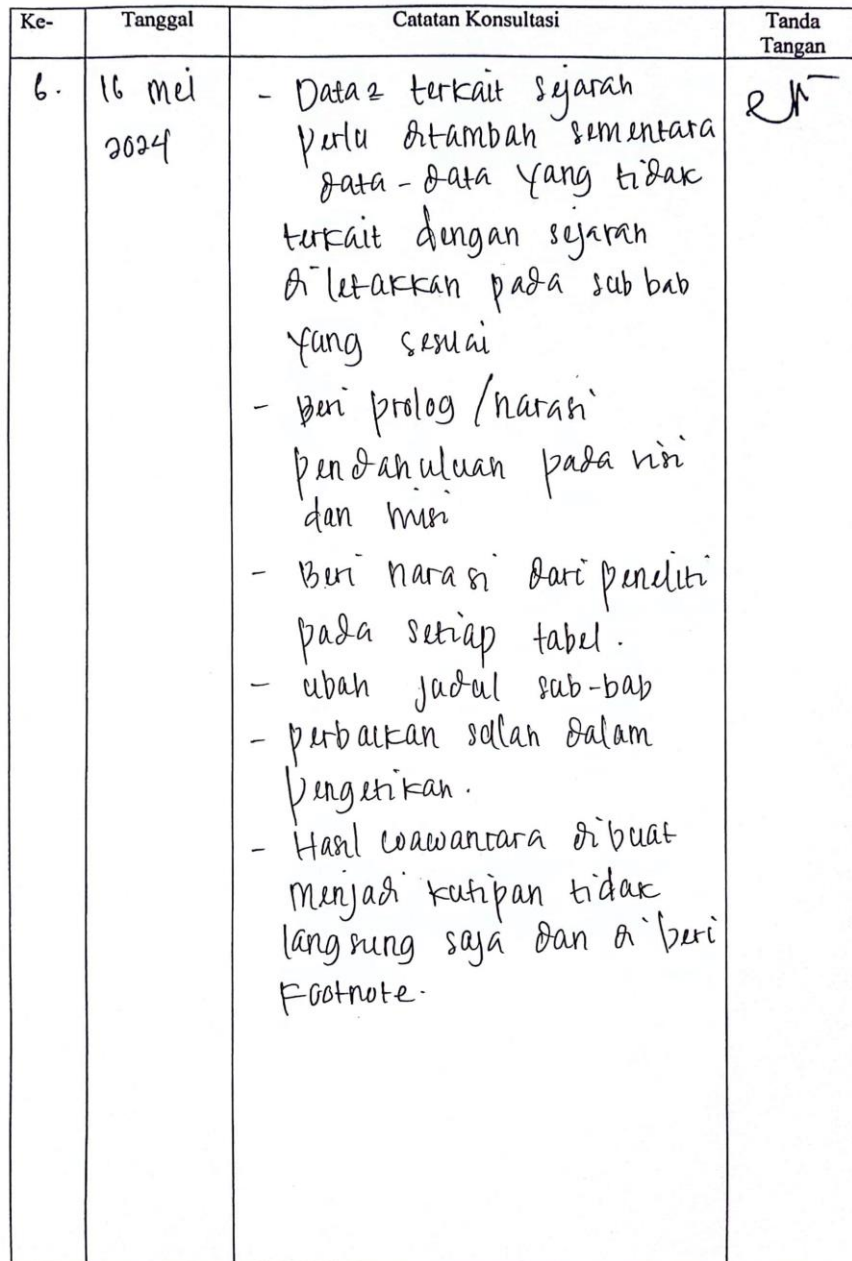 Ke-
Tanggal
Catatan Konsultasi
Tanda
Tangan
6.
16 Mei
2024
- Data2 terkait sejarah
perlu ditambah sementara
data-data yang tidak
terkait dengan sejarah
diletakkan pada sub bab
yang sesuai
- Beri prolog/narasi
pendahuluan pada visi
dan misi
- Beri narasi dari peneliti
pada setiap tabel.
- ubah judul sub-bab
- perbaikan salah dalam
pengetikan.
- Hasil wawancara dibuat
menjadi kutipan tidak
langsung saja dan diberi
Footnote.